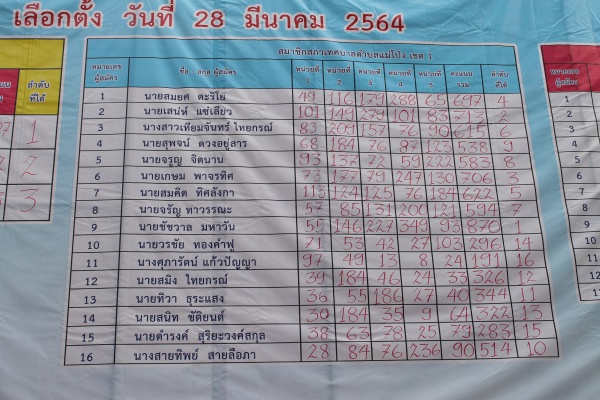 เลือกตั้ง วันที่ 28 มีนาคม 2564
สมาชิกสภาเทศบาลตำบลแม่โป่ง เขต 1
หมายเลข ผู้สมัคร ชื่อ - สกุล ผู้สมัคร หน่วยที่ 1 หน่วยที่ 2 หน่วยที่ 3 หน่วยที่ 4 หน่วยที่ 5 คะแนน รวม ลำดับ ที่ได้
1 นายสมยศ ตะริโย 49 116 179 288 65 697 4
2 นายเสน่ห์ แซ่เลียว 101 149 279 101 83 713 2
3 นางสาวเทียมจันทร์ ไทยกรณ์ 83 209 157 76 90 615 6
4 นายสุพจน์ ดวงอยู่สาร 68 184 76 87 123 538 9
5 นายจรูญ จิตนาน 93 137 72 59 222 583 8
6 นายเกษม พาจรทิศ 73 177 79 247 130 706 3
7 นายสมคิด ทิศลังกา 113 124 125 76 184 622 5
8 นายจรัญ ทาวรรณะ 57 85 131 200 121 594 7
9 นายชัชวาล มหาวัน 55 146 227 349 93 870 1
10 นายวรชัย ทองคำฟู 71 53 42 27 103 296 14
11 นางศุภารัตน์ แก้วปัญญา 97 49 13 8 24 191 16
12 นายสมิง ไทยกรณ์ 39 184 46 24 33 326 12
13 นายทิวา ธุระแสง 36 55 186 27 40 344 11
14 นายสนิท ขัติยนต์ 30 184 35 9 64 322 13
15 นายดำรงค์ สุริยะวงค์สกุล 38 63 78 25 79 283 15
16 นางสายทิพย์ สายลือภา 28 84 76 236 90 514 10
ลำดับ ที่ได้
1
2
3